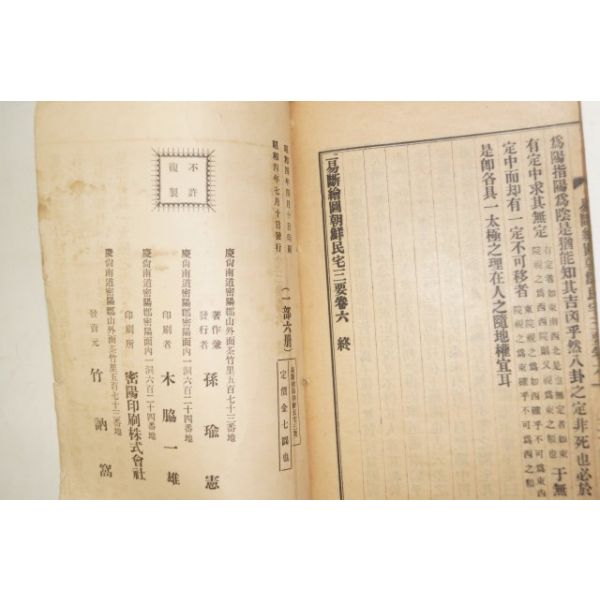 爲陽指陽爲陰是猶能知其吉凶乎然八卦之定非死也必於
有定中求其無定
有定者如東南西北是也無定者如東
院視之爲西西院
于無
定中而却有一定不可移者
是卽各具一太極之理在人之隨地權宜耳
易斷繪圖朝鮮民宅三要卷六 終
昭和四年七月十日發行
(一部六册)
定價金七圓也
不許
複製
慶尙南道密陽郡山外面茶竹里五百七十三番地
著作兼
發行者
孫瑜憲
慶尙南道密陽郡密陽面內一洞六百二十四番地
印刷者
木脇一雄
慶尙南道密陽郡密陽面內一洞六百二十四番地
印刷所
密陽印刷株式會社
慶尙南道密陽郡山外面茶竹里五百七十三番地
發賣元
竹訥窩